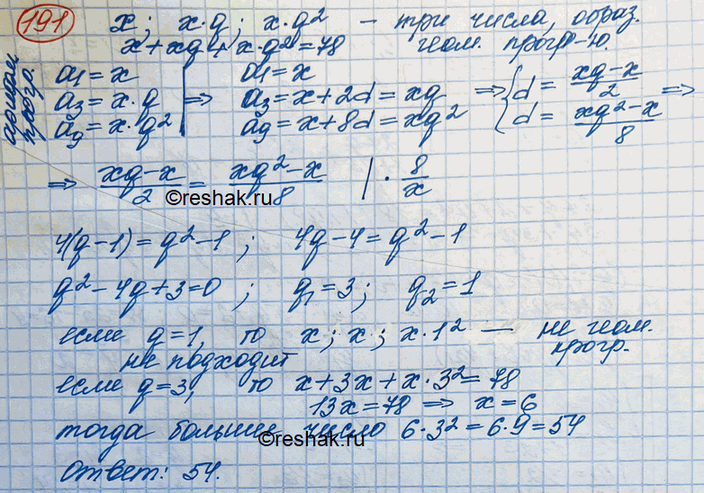 191
x; x·q; x·q² — три числа, образ.
x+xq+x·q²=78 геом. прогр-ю.
арифм. прогр.
a₁=x | a₁=x
a₃=x·q ⇒ a₃=x+2d=xq ⇒ { d= (xq-x)/2
a₉=x·q² | a₉=x+8d=xq² { d= (xq²-x)/8 ⇒
⇒ (xq-x)/2 = (xq²-x)/8 | · 8/x
©reshak.ru
4(q-1)=q²-1; 4q-4=q²-1
q²-4q+3=0; q₁=3; q₂=1
если q=1, то x; x; x·1² — не геом. прогр.
не подходит
если q=3, то x+3x+x·3²=78
13x=78 ⇒ x=6
тогда большее число 6·3²=6·9=54
©reshak.ru
Ответ: 54.